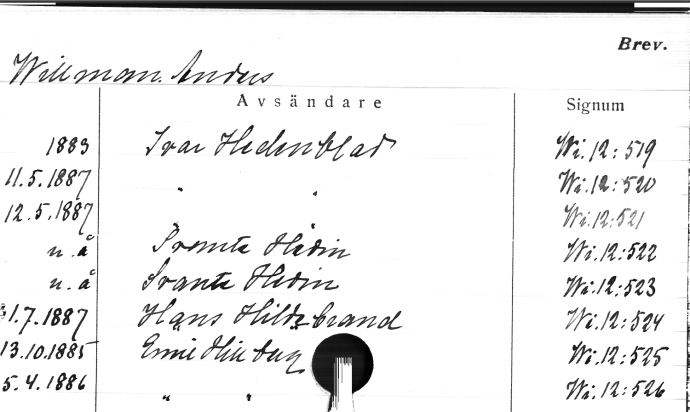 Brev.
Willman. Anders
Avsändare Signum
1883 Ivar Hedenblad Wi.12:519
11.5.1887 " " Wi.12:520
12.5.1887 " " Wi.12:521
u.å Svante Hedin Wi.12:522
u.å Svante Hedin Wi.12:523
1.7.1887 Hans Hildebrand Wi.12:524
13.10.1885 Wi.12:525
5.4.1886 " " Wi.12:526